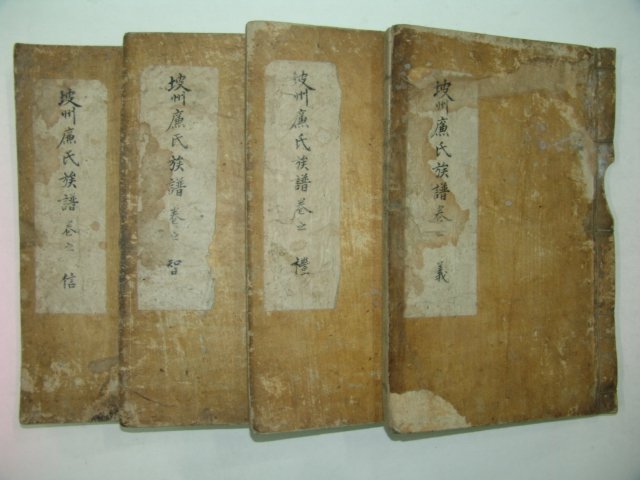 坡州廉氏族譜 卷之 義
坡州廉氏族譜 卷之 禮
坡州廉氏族譜 卷之 智
坡州廉氏族譜 卷之 信